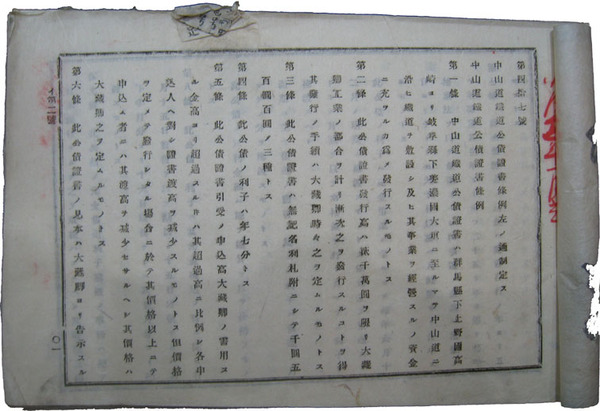 第四拾七號
中山道鐵道公債證書條例左ノ通制定ス
中山道鐵道公債證書條例
第一條 中山道鐵道公債證書ハ群馬縣下上野國高
崎ヨリ岐阜縣下美濃國大垣ニ至ルマテ中山道ニ
沿ヒ鐵道ヲ敷設シ及ヒ其事業ヲ經營スルノ資金
ニ充ツルカ爲メ發行スルモノトス
第二條 此公債證書發行高ハ貳千萬圓ヲ限リ大藏
卿工業ノ都合ヲ計リ漸次之ヲ發行スルコトヲ得
其發行ノ手續ハ大藏卿時々之ヲ定ムルモノトス
第三條 此公債證書ハ無記名利札附ニシテ千圓五
百圓百圓ノ三種トス
第四條 此公債ノ利子ハ年七分トス
第五條 此公債證書引受ノ申込高大藏卿ノ需用ス
ル金高ヨリ超過スルトキハ其超過高ニ比例シ各申
込人ヘ對シ證書渡高ヲ減少スルモノトス但價格
ヲ定メテ發行シタル場合ニ於テ其價格以上ニテ
申込ム者ニハ其渡高ヲ減少セサルヘシ其價格ハ
大藏卿之ヲ定ムルモノトス
第六條 此公債證書ノ見本ハ大藏卿ヨリ告示スル
イ第二號
〇一